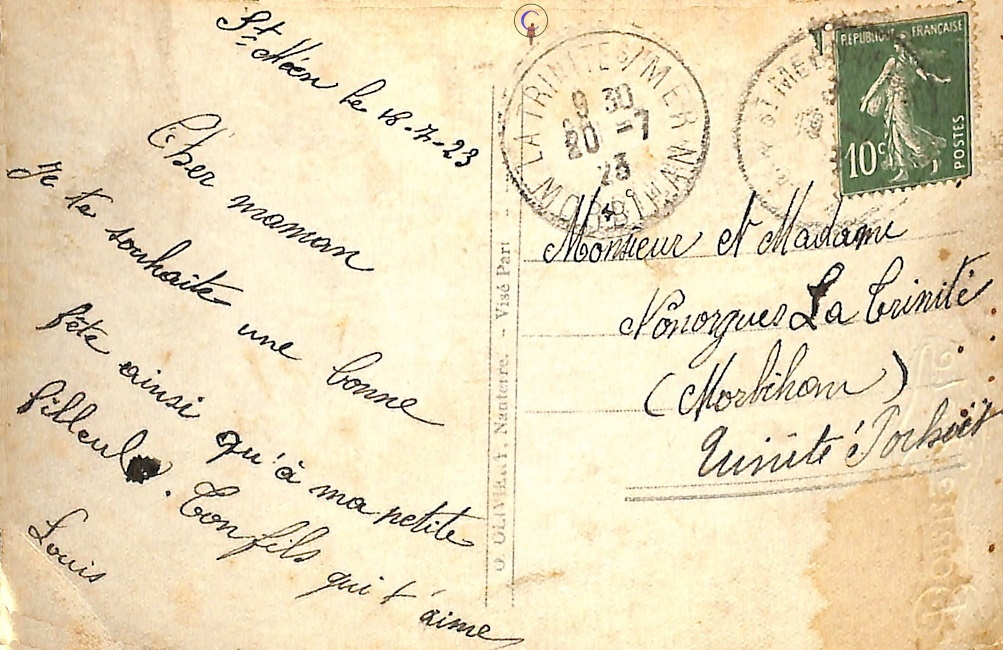 St Méen le 18-7-23
Cher maman
Je te souhaite une bonne
fête ainsi qu'à ma petite
filleule. Ton fils qui t'aime
Louis
O. OLIVIERY, Nanterre. - Visé Paris
LA TRINITE S/MER
9 30
20 -7
23
MORBIHAN
ST MEE
REPUBLIQUE FRANÇAISE
10c
POSTES
Monsieur et Madame
Nonorgues La Trinité
(Morbihan)
Trinité Porhoët